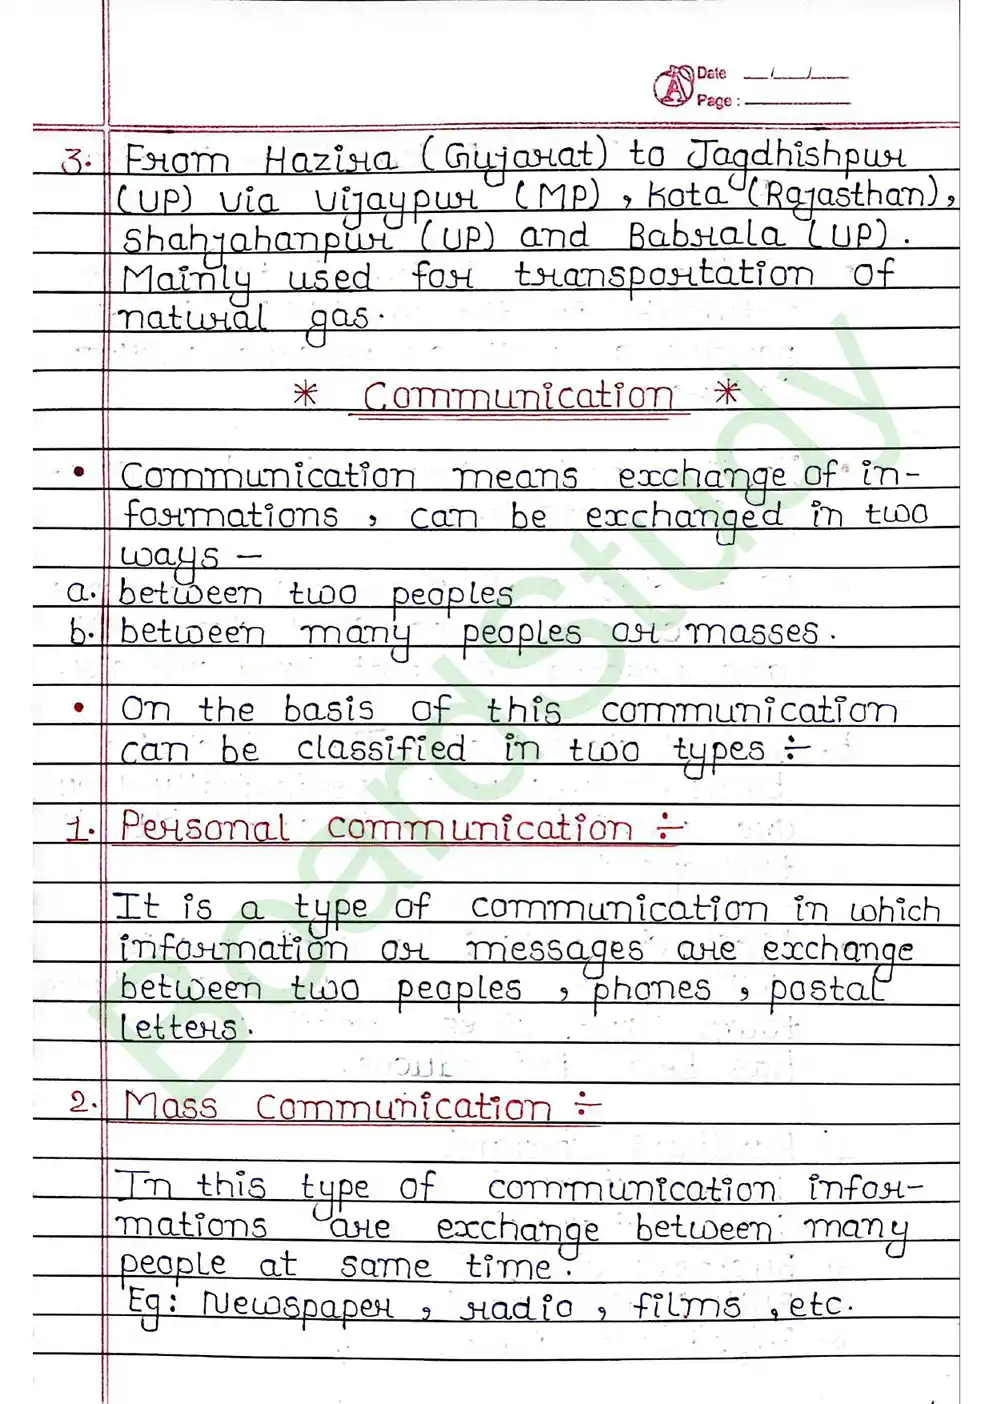 Date __/__/__
Page : ______
3. From Hazira (Gujarat) to Jagdhishpur
(UP) via Vijaypur (MP), Kota (Rajasthan),
Shahjahanpur (UP) and Babrala (UP).
Mainly used for transportation of
natural gas.
* Communication *
• Communication means exchange of in-
formations, can be exchanged in two
ways –
a. between two peoples
b. between many peoples or masses.
• On the basis of this communication
can be classified in two types ÷
1. Personal communication ÷
It is a type of communication in which
information or messages are exchange
between two peoples, phones, postal
letters.
2. Mass Communication ÷
In this type of communication infor-
mations are exchange between many
people at same time.
Eg: Newspaper, radio, films, etc.
BoardStudy